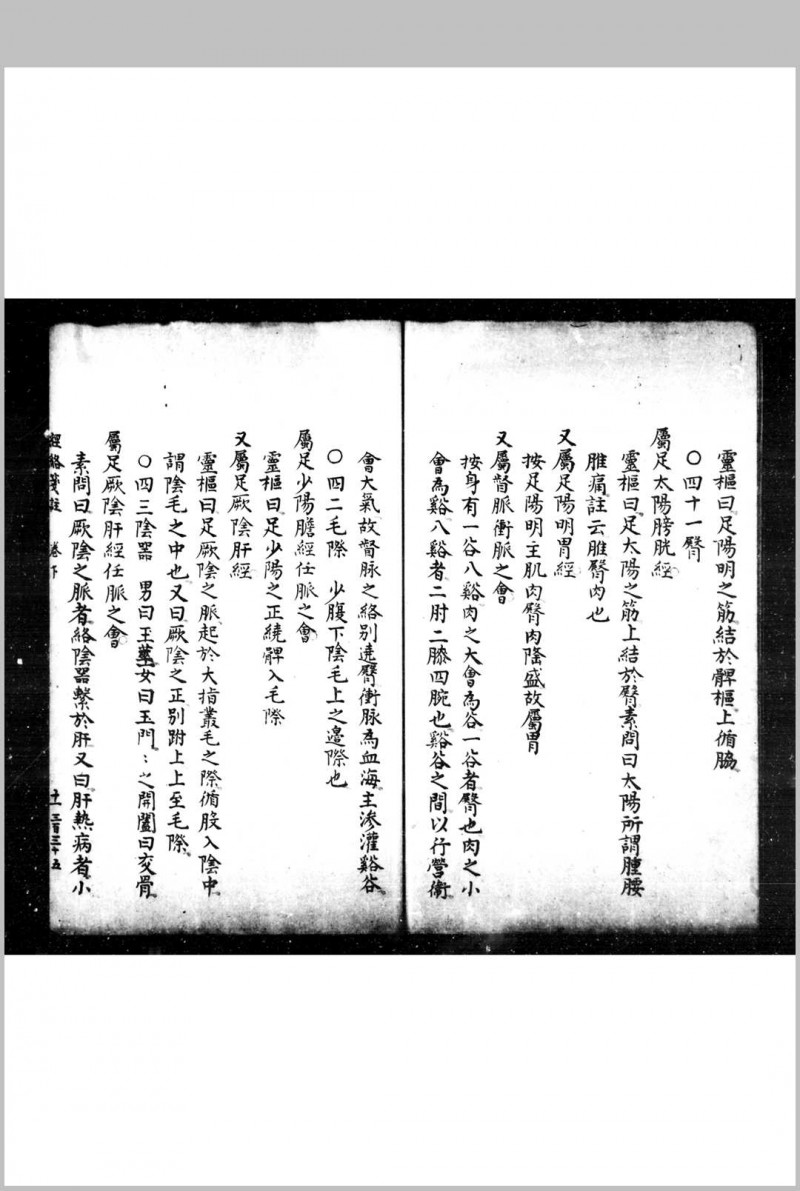 靈樞曰足陽明之筋結於髀樞上循脇
〇四十一臀
屬足太陽膀胱經
靈樞曰足太陽之筋上結於臀素問曰太陽所謂腫腰
脽痛註云脽臀肉也
又屬足陽明胃經
按足陽明主肌肉臀肉隆盛故屬胃
又屬督脈衝脈之會
按身有一谷八谿肉之大會為谷一谷者臀也肉之小
會為谿八谿者二肘二膝四腕也谿谷之間以行營衛
會大氣故督脉之絡別遶臀衝脉為血海主滲灌谿谷
〇四二毛際　少腹下陰毛上之邉際也
屬足少陽膽經任脈之會
靈樞曰足少陽之正繞髀入毛際
又屬足厥陰肝經
靈樞曰足厥陰之脈起於大指叢毛之際循股入陰中
謂陰毛之中也又曰厥陰之正別跗上上至毛際
〇四三陰器　男曰玉莖女曰玉門〻之開闔曰交骨
屬足厥陰肝經任脈之會
素問曰厥陰之脈者絡陰器繫於肝又曰肝熱病者小
經絡箋註　卷下　十一　三百三十五